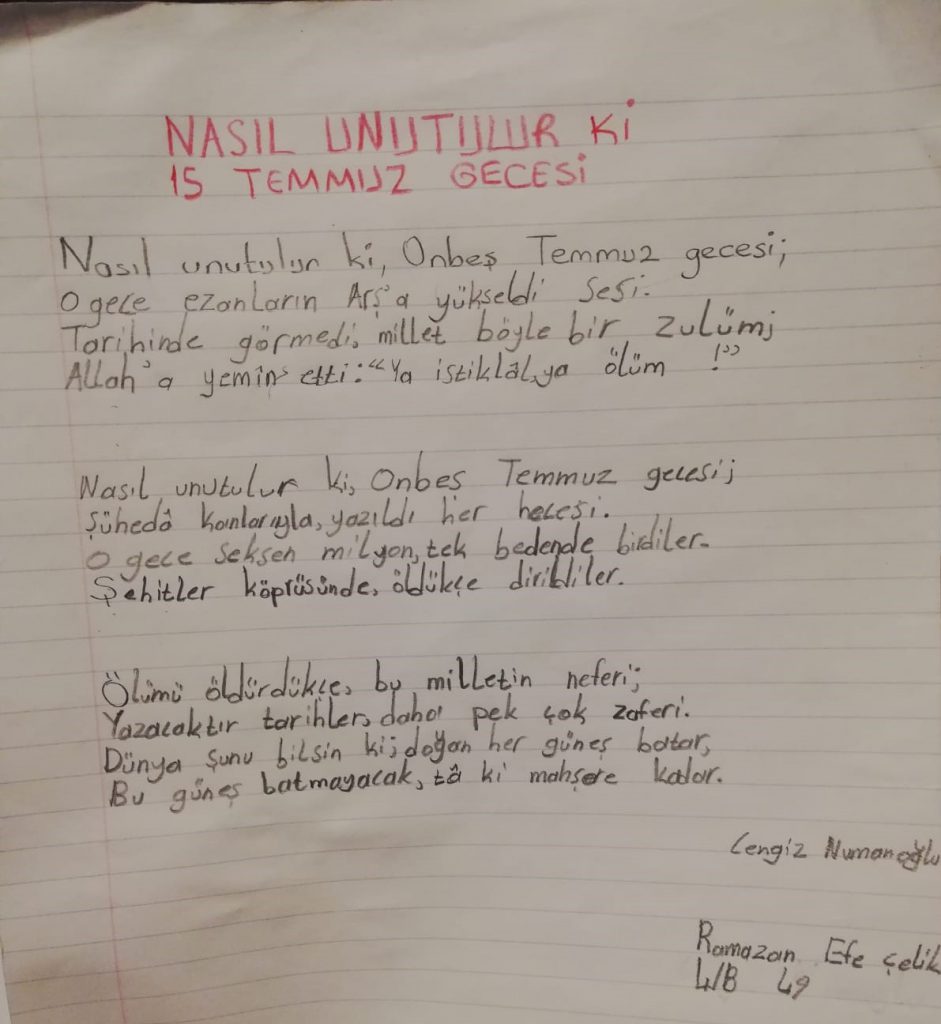 NASIL UNUTULUR Kİ
15 TEMMUZ GECESİ
Nasıl unutulur ki, Onbeş Temmuz gecesi;
O gece ezanların Arş'a yükseldi sesi.
Tarihinde görmedi, millet böyle bir zulüm;
Allah'a yemin etti: "Ya istiklâl, ya ölüm !"
Nasıl unutulur ki, Onbeş Temmuz gecesi;
Şühedâ kanlarıyla, yazıldı her hecesi.
O gece seksen milyon, tek bedende birdiler.
Şehitler köprüsünde, öldükçe dirildiler.
Ölümü öldürdükçe, bu milletin neferi;
Yazacaktır tarihler, daha pek çok zaferi.
Dünya şunu bilsin ki; doğan her güneş batar,
Bu güneş batmayacak, tâ ki mahşere kadar.
Cengiz Numanoğlu
Ramazan Efe çelik
4/B 49